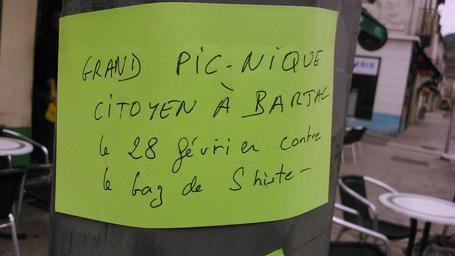 GRAND PIC-NIQUE
CITOYEN À BARJAC
le 28 février contre
le gaz de Shiste -